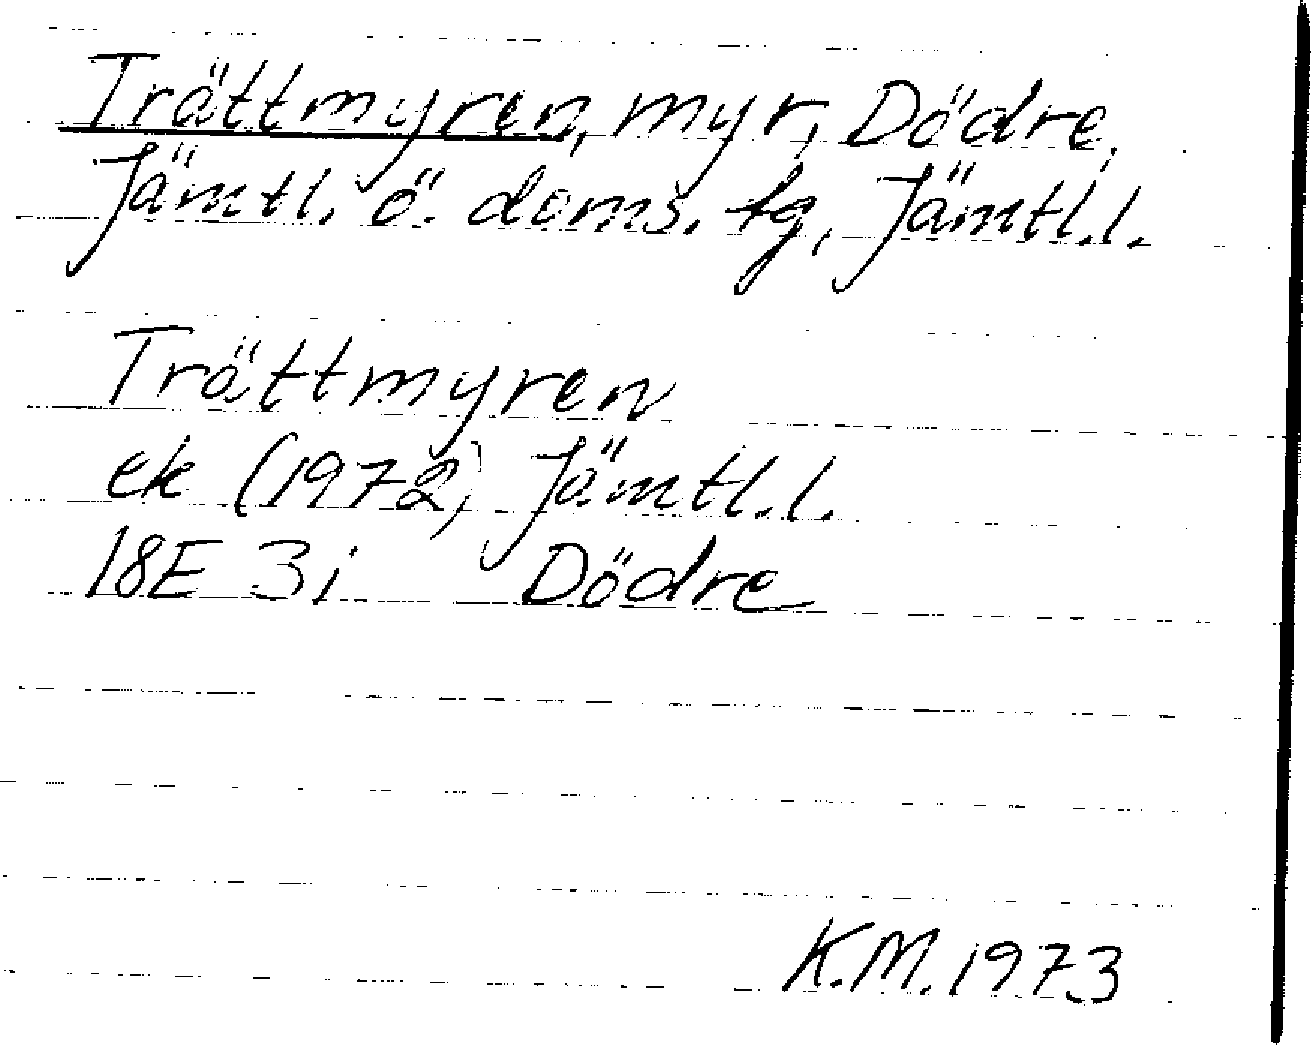 Trättmyren, myr, Dödre,
Jämtl. ö. doms. tg, Jämtl.l.
Trättmyren
ek (1972) Jämtl.l.
18E 3i Dödre
K.M. 1973